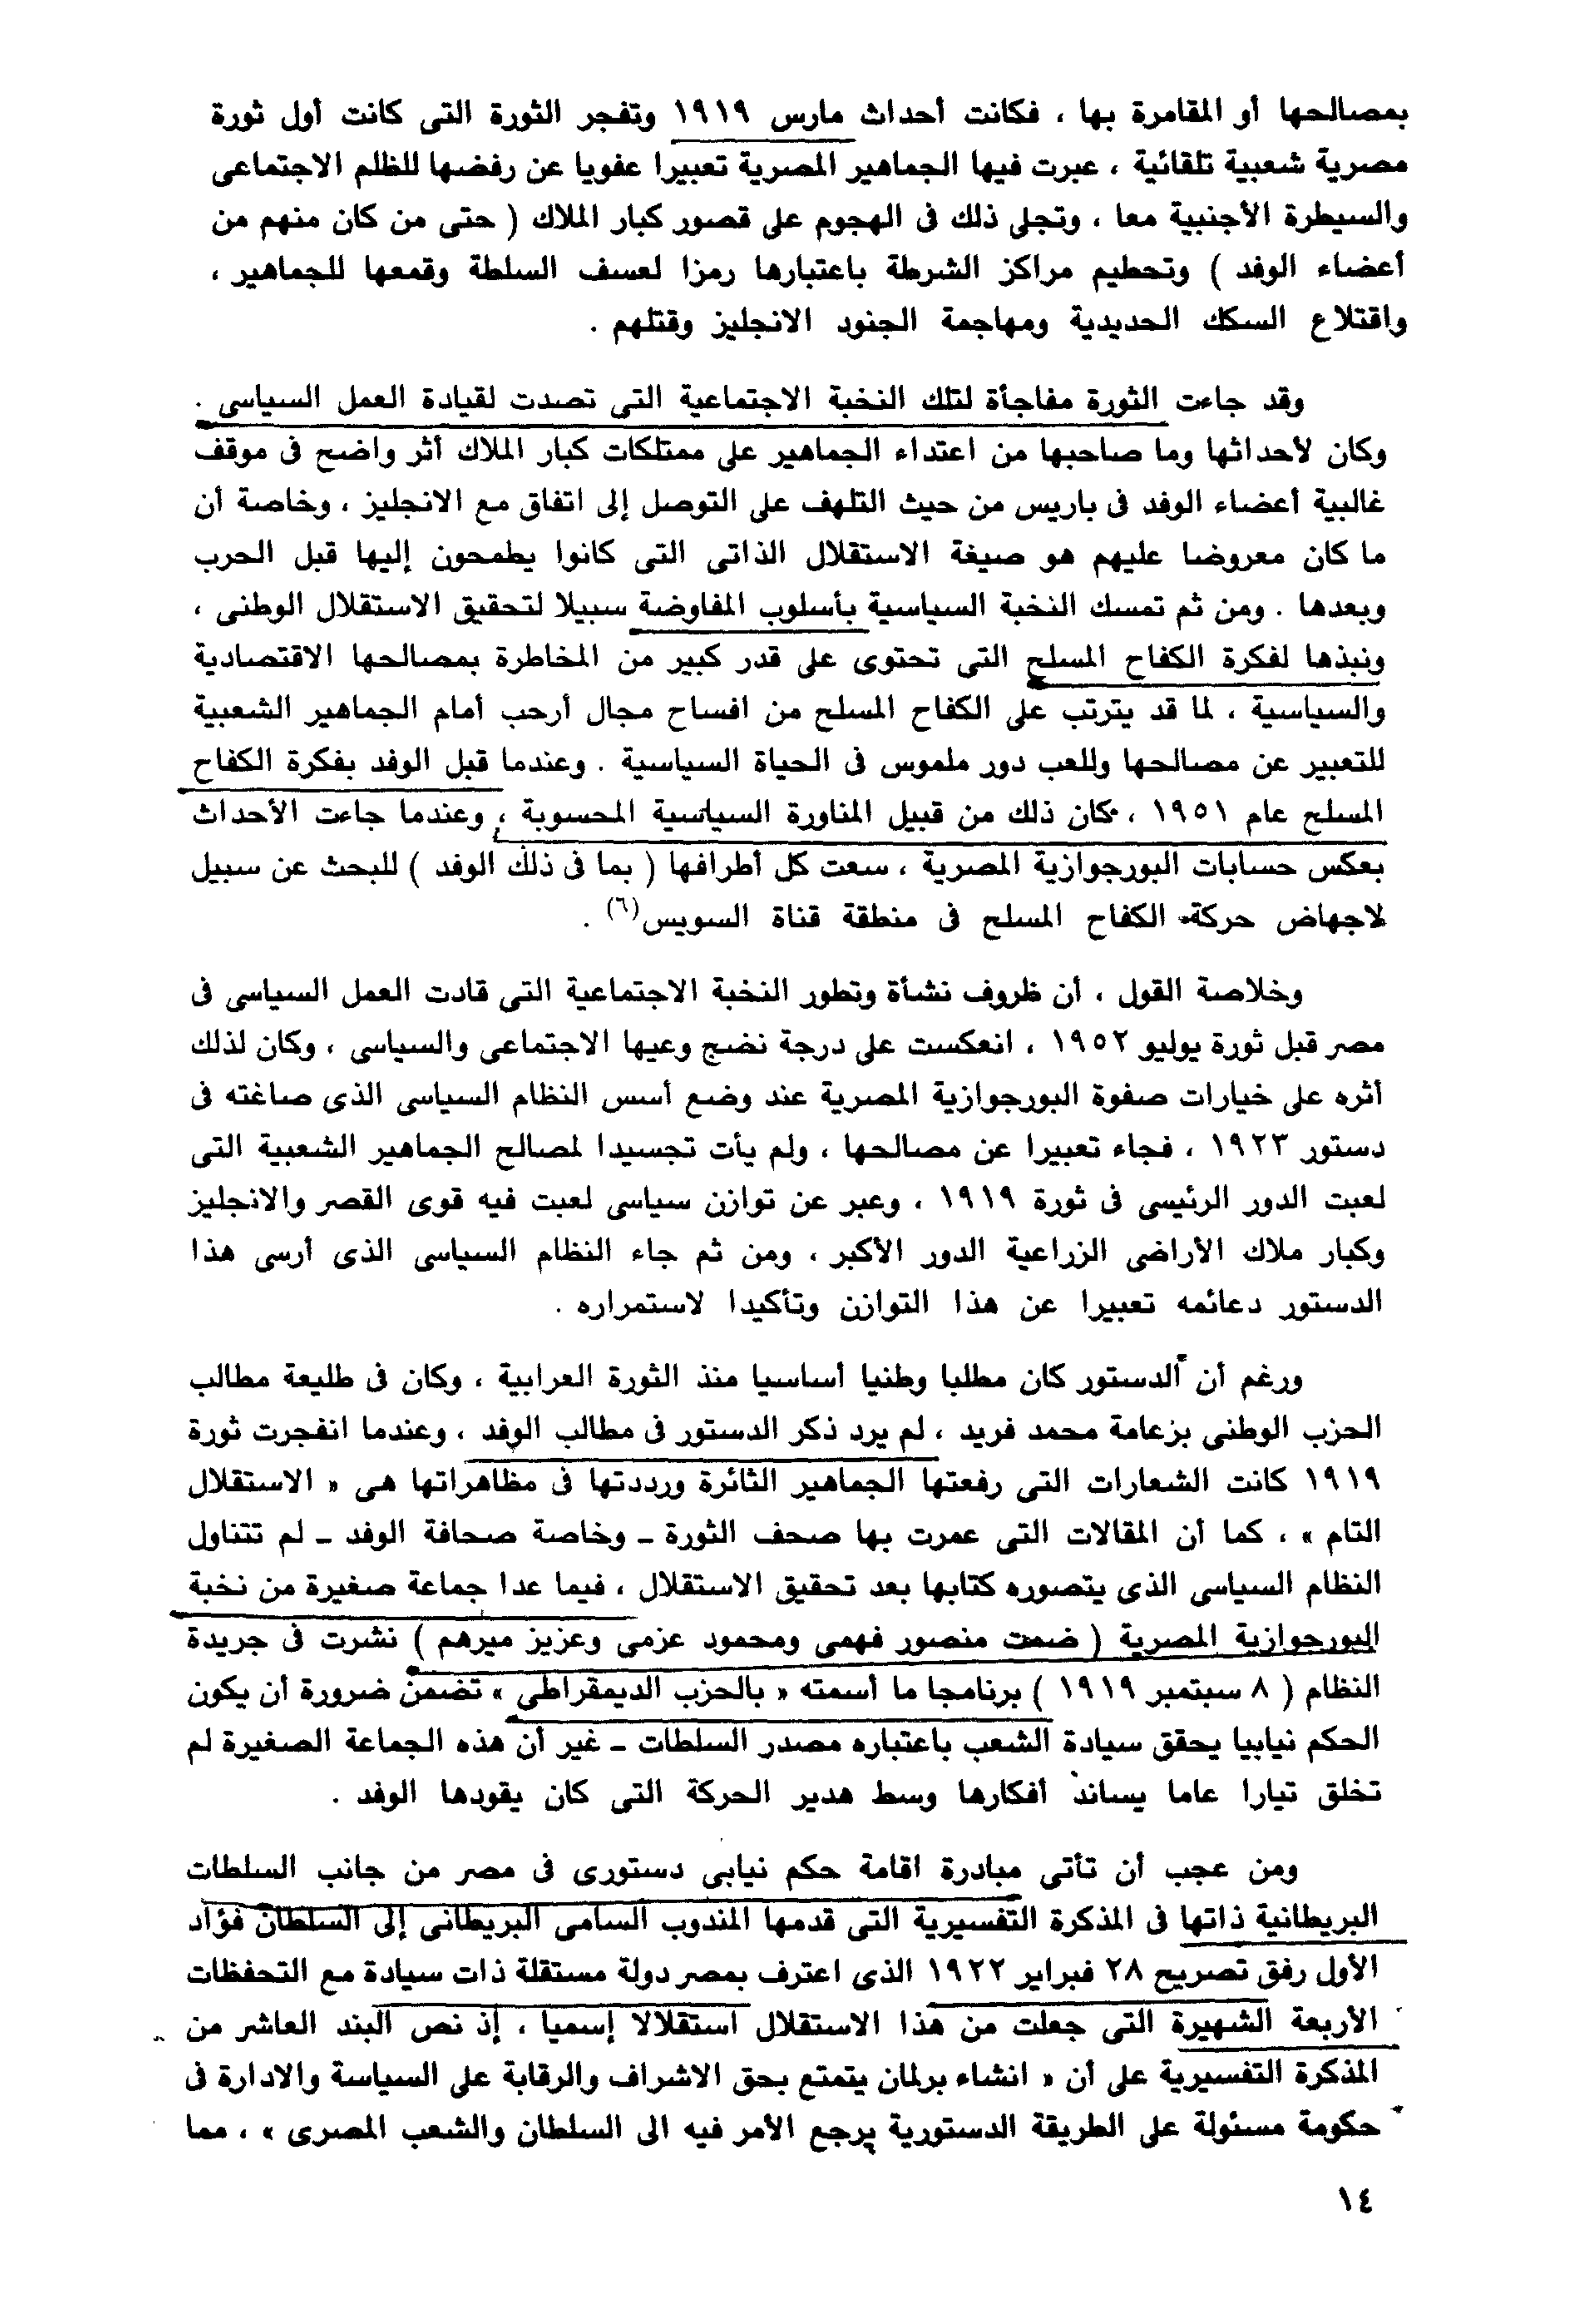 بمصالحها أو المقامرة بها ، فكانت أحداث مارس ١٩١٩ وتفجر الثورة التى كانت أول ثورة
مصرية شعبية تلقائية ، عبرت فيها الجماهير المصرية تعبيرا عفويا عن رفضها للظلم الاجتماعى
والسيطرة الأجنبية معا ، وتجلى ذلك فى الهجوم على قصور كبار الملاك ( حتى من كان منهم من
أعضاء الوفد ) وتحطيم مراكز الشرطة باعتبارها رمزا لعسف السلطة وقمعها للجماهير ،
واقتلاع السكك الحديدية ومهاجمة الجنود الانجليز وقتلهم .
وقد جاءت الثورة مفاجأة لتلك النخبة الاجتماعية التى تصدت لقيادة العمل السياسى .
وكان لأحداثها وما صاحبها من اعتداء الجماهير على ممتلكات كبار الملاك أثر واضح فى موقف
غالبية أعضاء الوفد فى باريس من حيث التلهف على التوصل إلى اتفاق مع الانجليز ، وخاصة أن
ما كان معروضا عليهم هو صيغة الاستقلال الذاتى التى كانوا يطمحون إليها قبل الحرب
وبعدها . ومن ثم تمسك النخبة السياسية بأسلوب المفاوضة سبيلا لتحقيق الاستقلال الوطنى ،
ونبذها لفكرة الكفاح المسلح التى تحتوى على قدر كبير من المخاطرة بمصالحها الاقتصادية
والسياسية ، لما قد يترتب على الكفاح المسلح من افساح مجال أرحب أمام الجماهير الشعبية
للتعبير عن مصالحها وللعب دور ملموس فى الحياة السياسية . وعندما قبل الوفد بفكرة الكفاح
المسلح عام ١٩٥١ ، كان ذلك من قبيل المناورة السياسية المحسوبة ، وعندما جاءت الأحداث
بعكس حسابات البورجوازية المصرية ، سعت كل أطرافها ( بما فى ذلك الوفد ) للبحث عن سبيل
لاجهاض حركة الكفاح المسلح فى منطقة قناة السويس(٦) .
وخلاصة القول ، أن ظروف نشأة وتطور النخبة الاجتماعية التى قادت العمل السياسى فى
مصر قبل ثورة يوليو ١٩٥٢ ، انعكست على درجة نضج وعيها الاجتماعى والسياسى ، وكان لذلك
أثره على خيارات صفوة البورجوازية المصرية عند وضع أسس النظام السياسى الذى صاغته فى
دستور ١٩٢٣ ، فجاء تعبيرا عن مصالحها ، ولم يأت تجسيدا لمصالح الجماهير الشعبية التى
لعبت الدور الرئيسى فى ثورة ١٩١٩ ، وعبر عن توازن سياسى لعبت فيه قوى القصر والانجليز
وكبار ملاك الأراضى الزراعية الدور الأكبر ، ومن ثم جاء النظام السياسى الذى أرسى هذا
الدستور دعائمه تعبيرا عن هذا التوازن وتأكيدا لاستمراره .
ورغم أن الدستور كان مطلبا وطنيا أساسيا منذ الثورة العرابية ، وكان فى طليعة مطالب
الحزب الوطنى بزعامة محمد فريد ، لم يرد ذكر الدستور فى مطالب الوفد ، وعندما انفجرت ثورة
١٩١٩ كانت الشعارات التى رفعتها الجماهير الثائرة ورددتها فى مظاهراتها هى « الاستقلال
التام » ، كما أن المقالات التى عمرت بها صحف الثورة ـ وخاصة صحافة الوفد ـ لم تتناول
النظام السياسى الذى يتصوره كتابها بعد تحقيق الاستقلال ، فيما عدا جماعة صغيرة من نخبة
البورجوازية المصرية ( ضمت منصور فهمى ومحمود عزمى وعزيز ميرهم ) نشرت فى جريدة
النظام ( ٨ سبتمبر ١٩١٩ ) برنامجا ما أسمته « بالحزب الديمقراطى » تضمن ضرورة أن يكون
الحكم نيابيا يحقق سيادة الشعب باعتباره مصدر السلطات ـ غير أن هذه الجماعة الصغيرة لم
تخلق تيارا عاما يساند أفكارها وسط هدير الحركة التى كان يقودها الوفد .
ومن عجب أن تأتى مبادرة اقامة حكم نيابى دستورى فى مصر من جانب السلطات
البريطانية ذاتها فى المذكرة التفسيرية التى قدمها المندوب السامى البريطانى إلى السلطان فؤاد
الأول رفق تصريح ٢٨ فبراير ١٩٢٢ الذى اعترف بمصر دولة مستقلة ذات سيادة مع التحفظات
الأربعة الشهيرة التى جعلت من هذا الاستقلال استقلالا إسميا ، إذ نص البند العاشر من
المذكرة التفسيرية على أن « انشاء برلمان يتمتع بحق الاشراف والرقابة على السياسة والادارة فى
حكومة مسئولة على الطريقة الدستورية يرجع الأمر فيه الى السلطان والشعب المصرى » ، مما
١٤